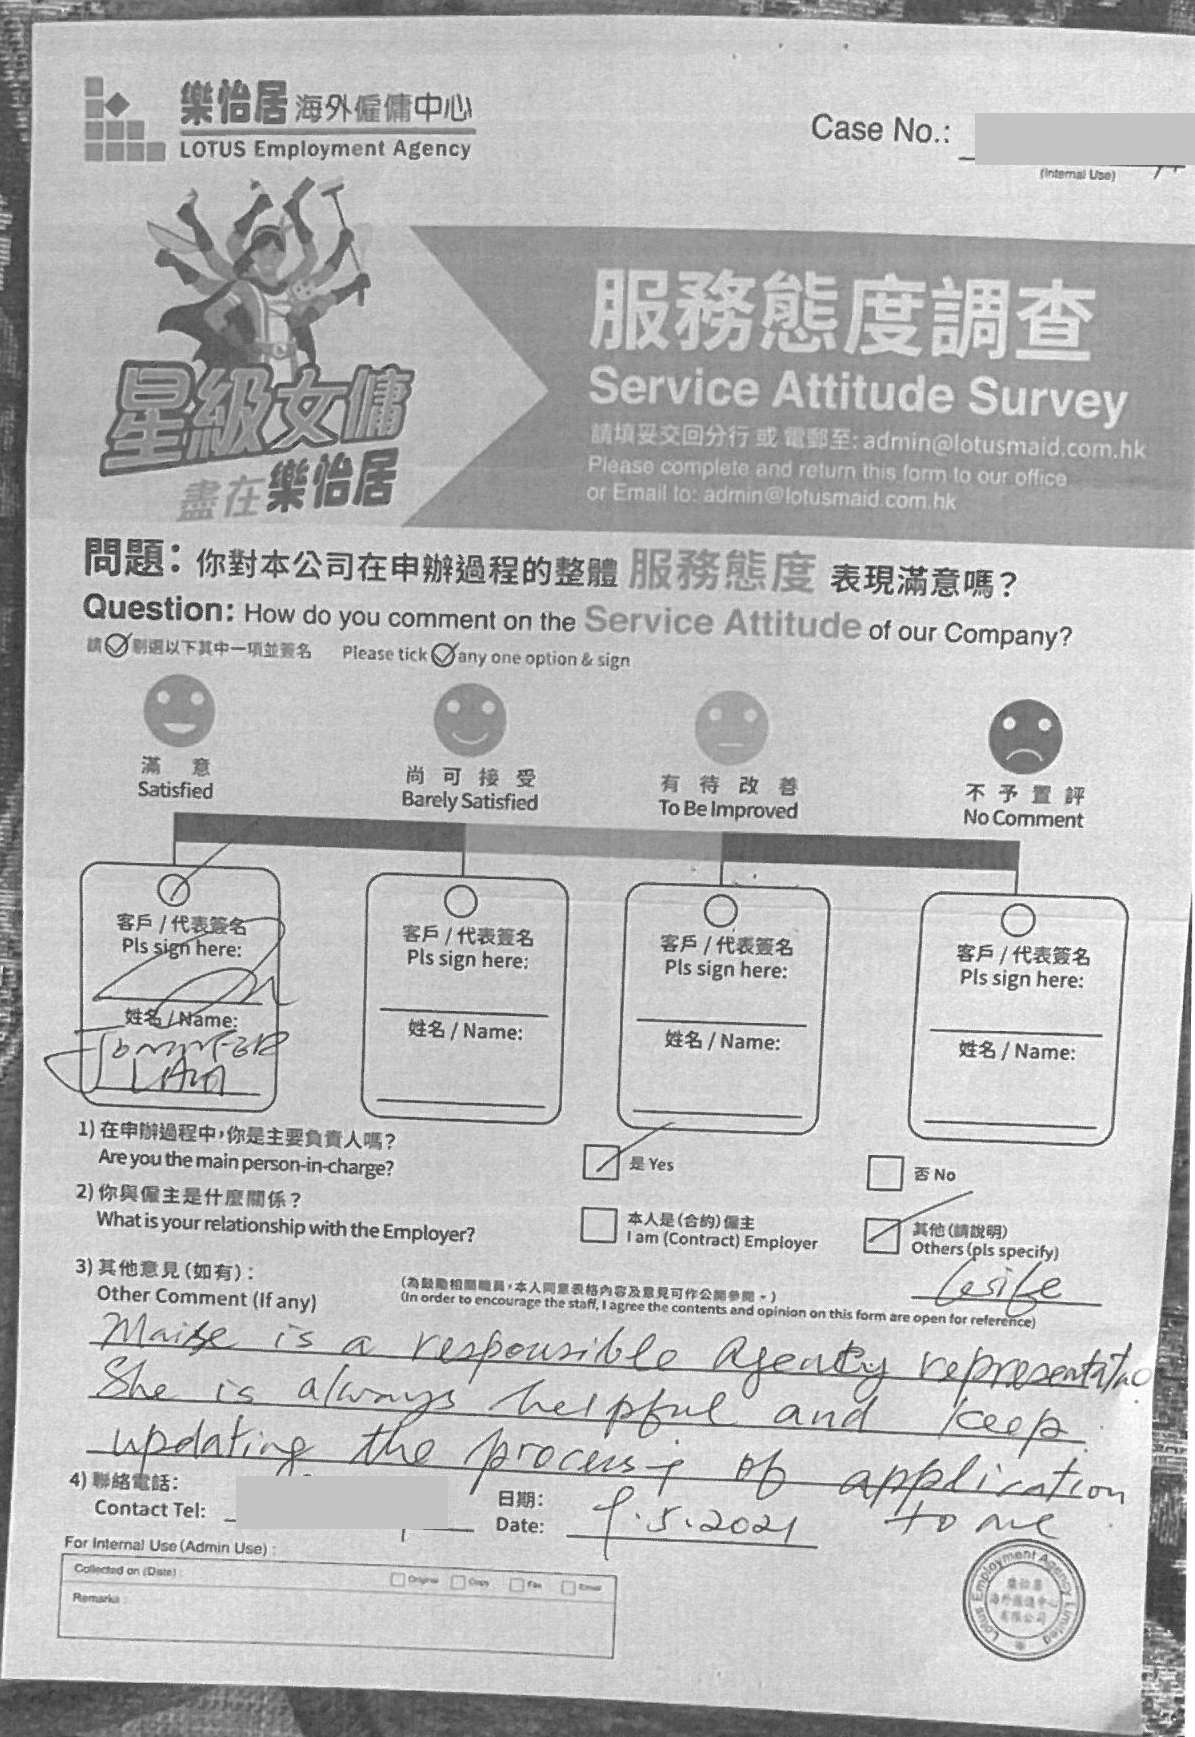 樂怡居 海外僱傭中心
LOTUS Employment Agency
Case No.:
(Internal Use)
星級女傭
盡在樂怡居
服務態度調查
Service Attitude Survey
請填妥交回分行 或 電郵至: admin@lotusmaid.com.hk
Please complete and return this form to our office
or Email to: admin@lotusmaid.com.hk
問題: 你對本公司在申辦過程的整體 服務態度 表現滿意嗎?
Question: How do you comment on the Service Attitude of our Company?
請 剔選以下其中一項並簽名 Please tick any one option & sign
滿意
Satisfied
尚可接受
Barely Satisfied
有待改善
To Be Improved
不予置評
No Comment
客戶 / 代表簽名
Pls sign here:
姓名 / Name:
客戶 / 代表簽名
Pls sign here:
姓名 / Name:
客戶 / 代表簽名
Pls sign here:
姓名 / Name:
客戶 / 代表簽名
Pls sign here:
姓名 / Name:
1) 在申辦過程中,你是主要負責人嗎? 是 Yes 否 No
Are you the main person-in-charge?
2) 你與僱主是什麼關係? 本人是(合約)僱主 其他(請說明)
What is your relationship with the Employer? I am (Contract) Employer Others (pls specify)
3) 其他意見(如有): (為鼓勵相關職員,本人同意表格內容及意見可作公開參閱。)
Other Comment (If any) (In order to encourage the staff, I agree the contents and opinion on this form are open for reference)
is a responsible Agency
She is always helpful and keep
updating the process of application
to me
4) 聯絡電話: 日期:
Contact Tel: Date: 9.5.2021
For Internal Use (Admin Use) :
Collected on (Date) : Original Copy Fax Email
Remarks :
Lotus Employment Agency Limited
樂怡居
海外僱傭中心
有限公司